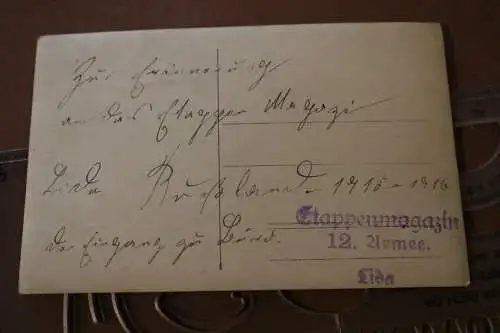 Zur Erinnerung
an das Etappen Magazi
Lida Rußland 1915-1916
der Eingang zu Büro.
Etappenmagazin
12. Armee.
Lida